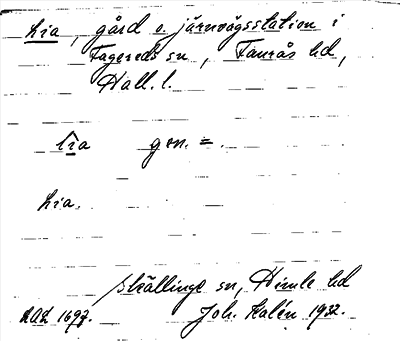 Lia, gård o. järnvägsstation i
Fagereds sn, Faurås hd,
Hall. l.
lı̂a gen. =.
Lia.
Skällinge sn, Himle hd
LAL 1697. Joh. Kalén 1932.